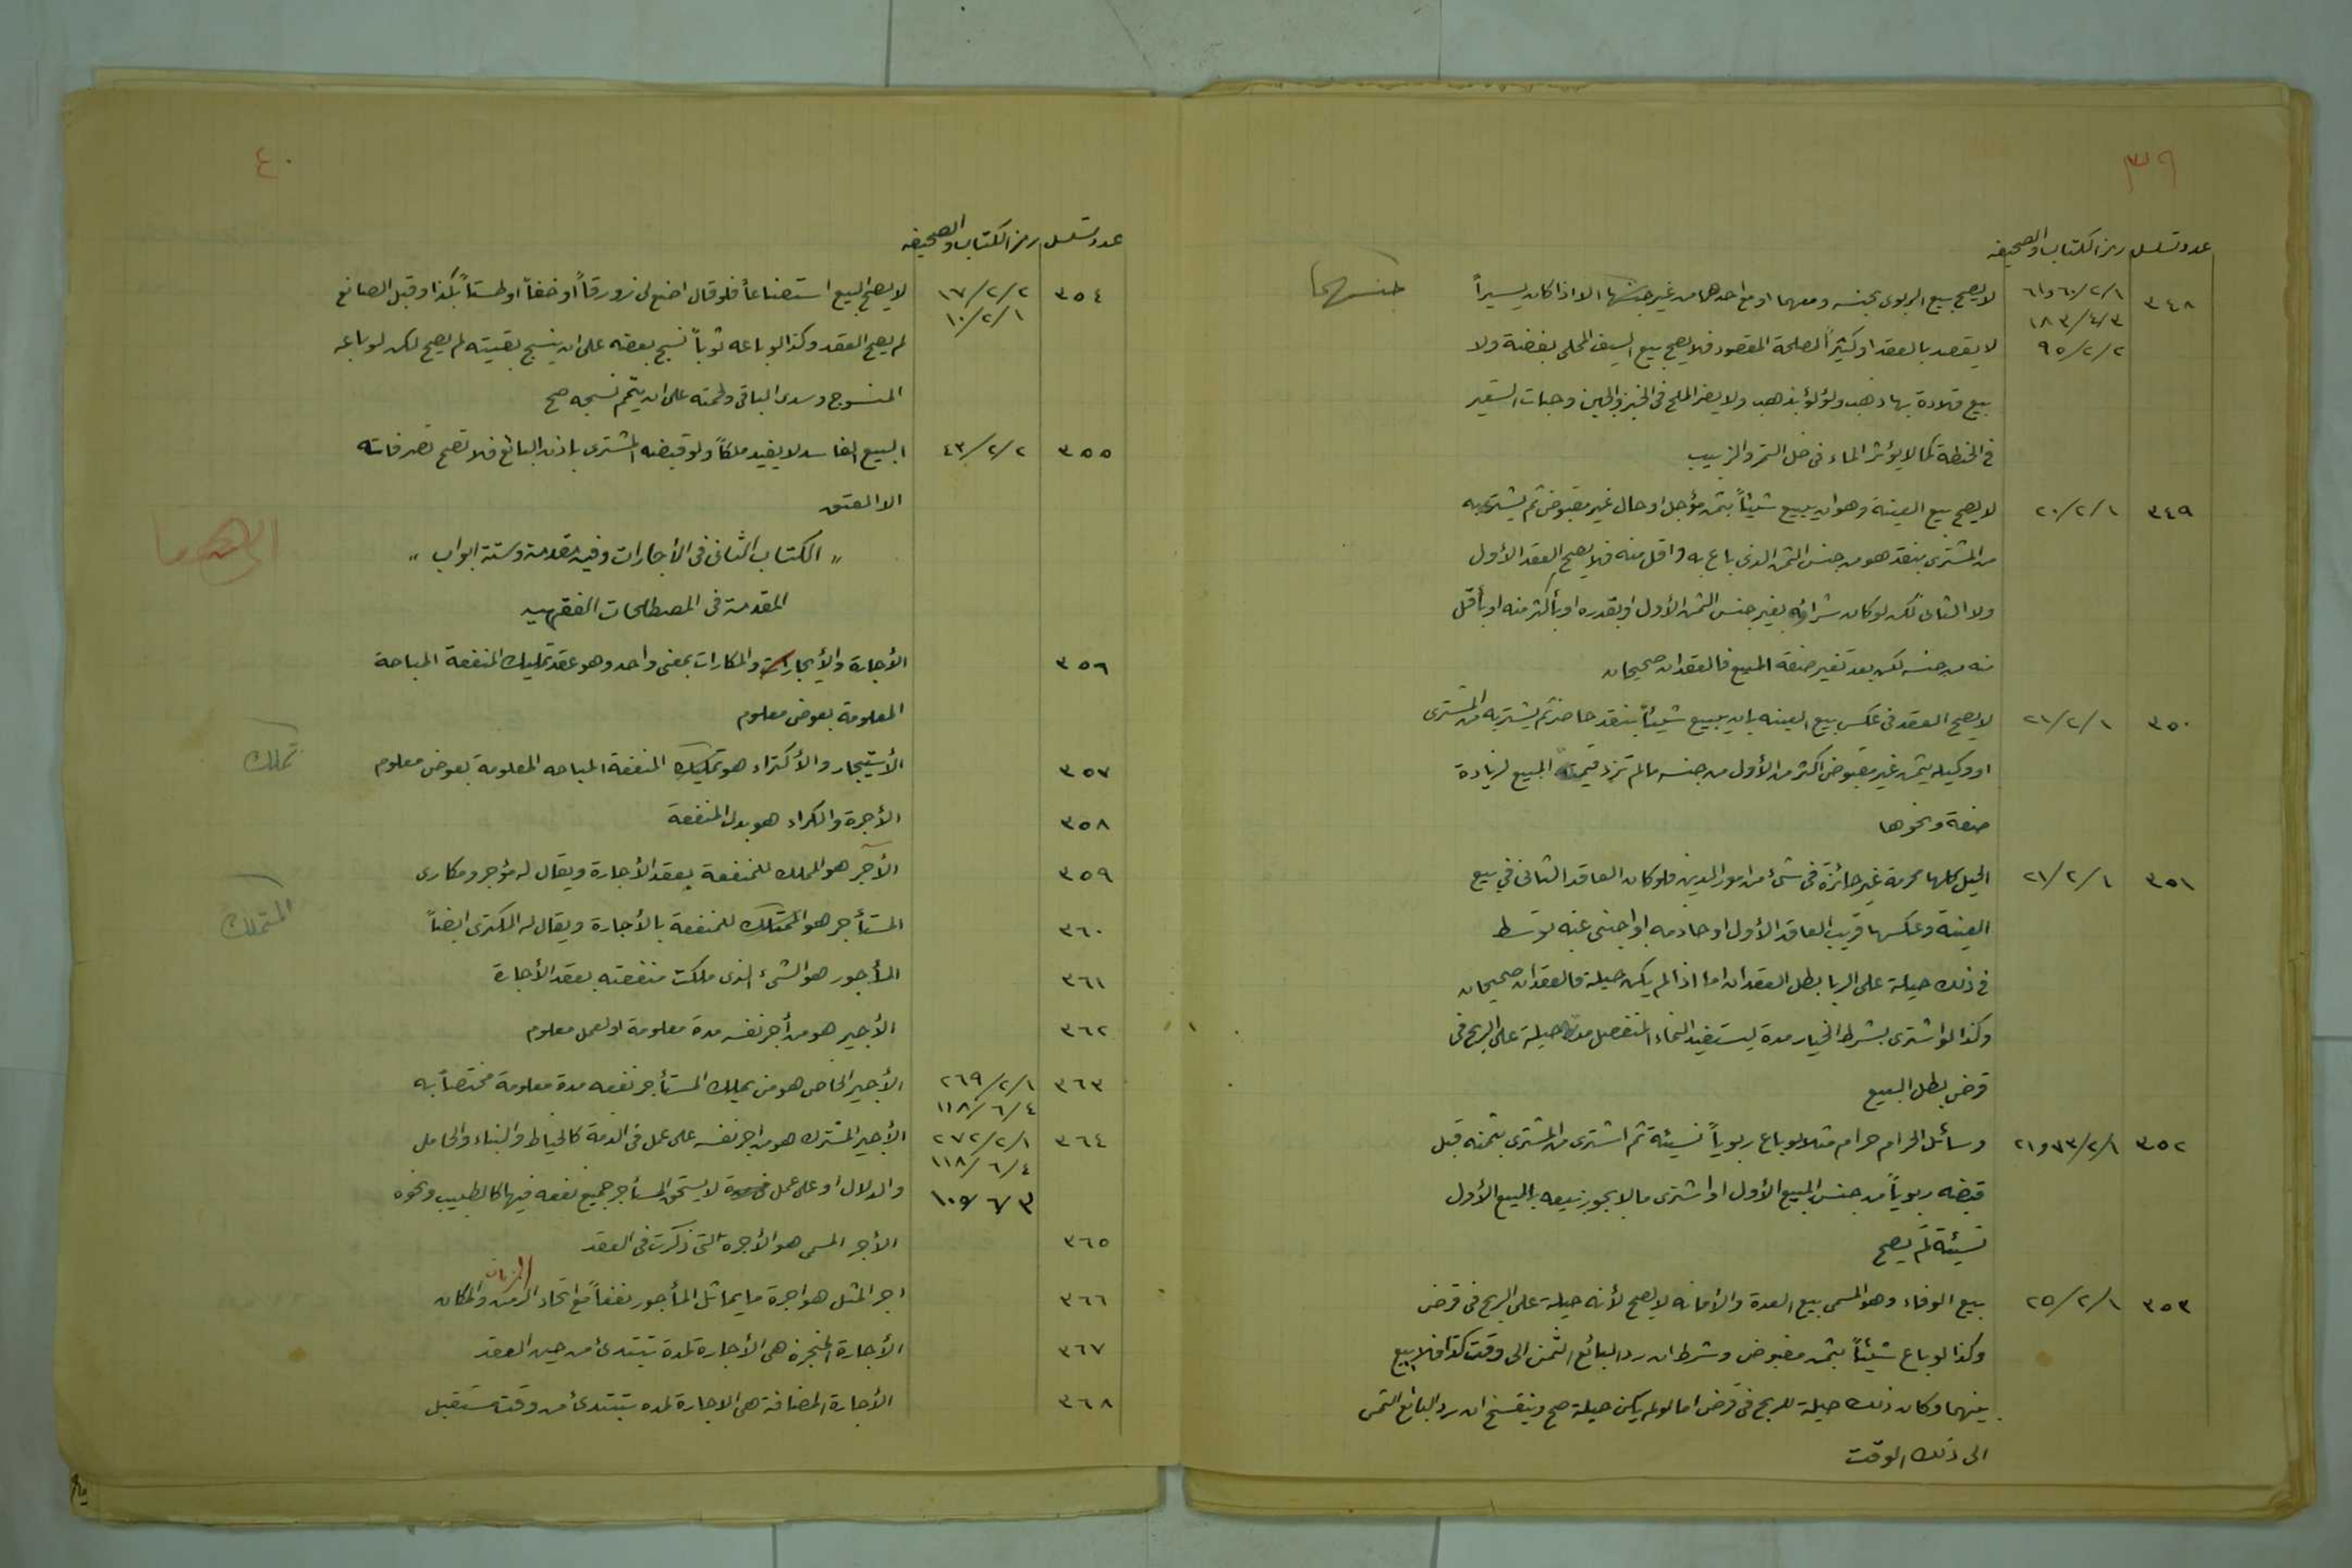 ٣٩
عدد تسلسل رمز الكتاب والصحيفه
٣٤٨ ١/٢/٦٠ و٦١ لا يصح بيع الربوى بجنسه ومعهما او مع احدهما من غير جنسهما الا اذا كان يسيراً
جنسهما
٣/٤/١٨٣
٢/٢/٩٥ لا يقصد بالعقد او كثيراً لمصلحة المقصود فلا يصح بيع السيف المحلى بفضة ولا
بيع قلادة بها ذهب ولؤلؤ بذهب ولا يضر الملح فى الخبز والجبن وحبات الشعير
فى الحنطة كما لا يؤثر الماء فى خل التمر والزبيب
٣٤٩ ١/٢/٢٠ لا يصح بيع العينة وهو ان يبيع شيئاً بثمن مؤجل او حال غير مقبوض ثم يشتريه
من المشترى بنقد هو من جنس الثمن الذى باع به واقل منه فلا يصح العقد الأول
ولا الثانى لكن لو كان شرائه بغير جنس الثمن الأول او بقدره او بأكثر منه او بأقل
منه من جنسه لكن بعد تغير صفة المبيع فالعقدان صحيحان
٣٥٠ ١/٢/٢١ لا يصح العقد فى عكس بيع العينه بان يبيع شيئاً بنقد حاضر ثم يشتريه من المشترى
او وكيله بثمن غير مقبوض اكثر من الأول من جنسه مالم تزد قيمة المبيع لزيادة
صفة ونحوها
٣٥١ ١/٢/٢١ الحيل كلها محرمة غير جائزة فى شئ من امور الدين فلو كان العاقد الثانى في بيع
العينة وعكسها قريب العاقد الأول او خادمه او اجنبى عنه توسط
فى ذلك حيلة على الربا بطل العقدان اما اذا لم يكن حيلة فالعقدان صحيحان
وكذا لو اشترى بشرط الخيار مدة ليستفيد النماء المنفصل حيلة على الربح فى
قرض بطل البيع
٣٥٢ ١/٢/٧٣ و٢١ وسائل الحرام حرام مثلا لو باع ربوياً نسيئة ثم اشترى من المشترى بثمنه قبل
قبضه ربوياً من جنس المبيع الأول او اشترى مالا يجوز بيعه بالمبيع الأول
نسيئة لم يصح
٣٥٣ ١/٢/٢٥ بيع الوفاء وهو المسمى ببيع العدة والأمانه لا يصح لأنه حيلة على الربح فى قرض
وكذا لو باع شيئاً بثمن مقبوض وشرط ان رد البائع الثمن الى وقت كذا فلا بيع
بينهما وكان ذلك حيلة للربح فى قرض اما لو لم يكن حيلة صح وينفسخ ان رد البائع الثمن
الى ذلك الوقت
٤٠
عدد تسلسل رمز الكتاب والصحيفه
٣٥٤ ٢/٢/١٧ لا يصح البيع استصناعاً فلو قال اصنع لى زورقاً او خفاً او طستاً بكذا وقبل الصانع
١/٢/١٠
لم يصح العقد وكذا لو باعه ثوباً نسج بعضه على ان ينسج بقيته لم يصح لكن لو باعه
المنسوج وسدى الباقى ولحمته على ان يتمم نسجه صح
٣٥٥ ٢/٢/٤٣ البيع الفاسد لا يفيد ملكاً ولو قبضه المشترى باذن البائع فلا تصح تصرفاته
الا العتق
„ الكتاب الثانى فى الأجارات وفيه مقدمة وستة ابواب „
المقدمة فى المصطلحات الفقهيه
٣٥٦ الأجارة والأيجارات والمكارات بمعنى واحد وهو عقد تمليك المنفعة المباحة
المعلومة بعوض معلوم
٣٥٧ الأستيجار والأكتراء هو تمليك المنفعة المباحه المعلومة بعوض معلوم
تملك
٣٥٨ الأجرة والكراء هو بدل المنفعة
٣٥٩ الآجر هو المملك للمنفعة بعقد الأجارة ويقال له مؤجر ومكارى
٣٦٠ المستأجر هو المتملك للمنفعة بالأجارة ويقال له المكترى ايضاً
المتملك
٣٦١ المأجور هو الشئ الذى ملكت منفعته بعقد الأجارة
٣٦٢ الأجير هو من أجر نفسه مدة معلومة او لعمل معلوم
٣٦٣ ١/٢/٢٦٩ الأجير الخاص هو من يملك المستأجر نفعه مدة معلومة مختصاً به
٤/٦/١١٨
٣٦٤ ١/٢/٢٧٢ الأجير المشترك هو من اجر نفسه على عمل فى الذمة كالخياط والبناء والحامل
٤/٦/١١٨
٣/٦/١٠٩ والدلال او على عمل فى مدة لا يستحق المستأجر جميع نفعه فيها كالطبيب ونحوه
٣٦٥ الأجر المسمى هو الأجرة التى ذكرت فى العقد
الزمان
٣٦٦ اجر المثل هو اجرة ما يماثل المأجور نفعاً مع اتحاد الزمن والمكان
٣٦٧ الأجارة المنجزة هى الأجارة لمدة تبتدئ من حين العقد
٣٦٨ الأجارة المضافة هى الاجارة لمده تبتدئ من وقت مستقبل